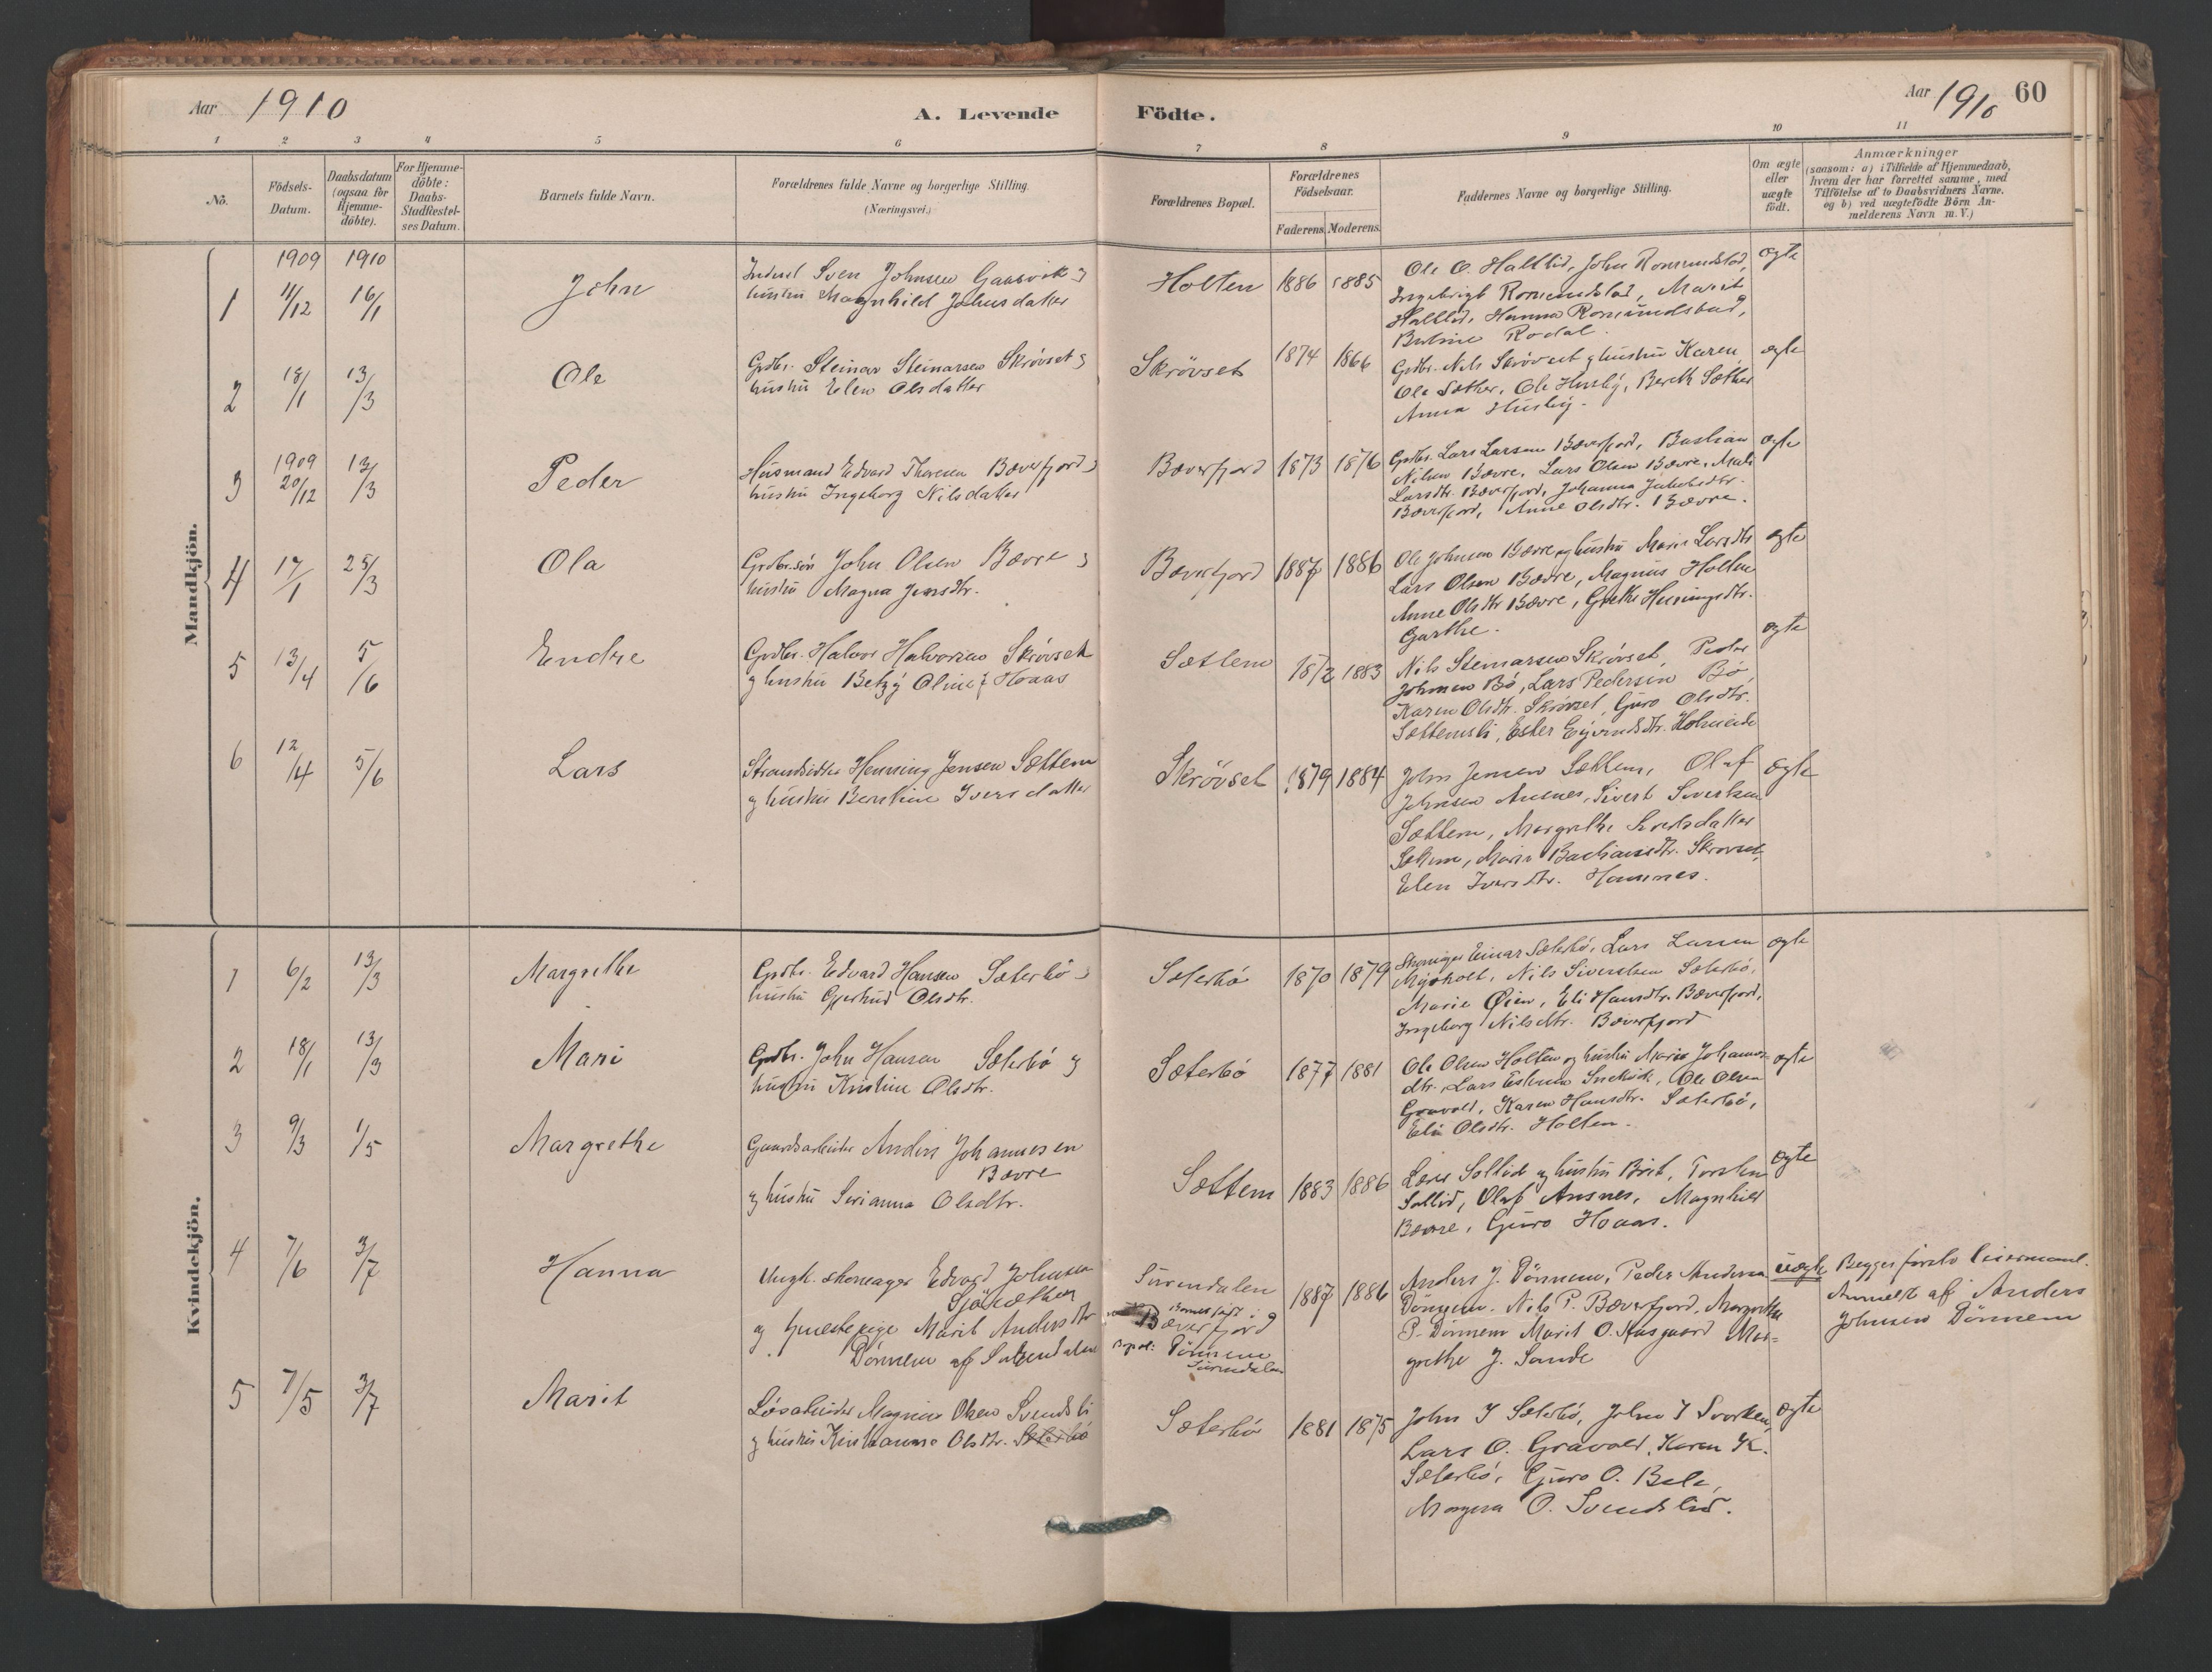 Aar 1910
A. Levende
Födte.
Aar 1910 60
1 2 3 4 5 6 7 8 9 10 11
No.
Födsels-
Datum.
Daabsdatum
(ogsaa for
Hjemme-
döbte).
For Hjemme-
döbte:
Daabs-
Stadfæstel-
ses Datum.
Barnets fulde Navn.
Forældrenes fulde Navne og borgerlige Stilling.
(Næringsvei.)
Forældrenes Bopæl.
Forældrenes
Födselsaar.
Faderens. Moderens.
Faddernes Navne og borgerlige Stilling.
Om ægte
eller
uægte
födt.
Anmærkninger
(saasom: a) i Tilfælde af Hjemmedaab,
hvem der har forrettet samme, med
Tilföielse af to Daabsvidners Navne,
og b) ved uægtefödte Börn An-
melderens Navn m. V.)
Mandkjön.
1
1909 1910
11/12 16/1
John
Inderst Sven Johnsen Gaasvik og
hustru Magnhild Johnsdatter
Holten 1886 1885
Ole O. Halllid, John Romundstad,
Ingebrigt Romundstad, Marit
Halllid, Hanna Romundstad,
Rodal.
ægte
2
18/1 13/3
Ole
Grdbr. Steinar Steinarsen Skrövset og
hustru Elen Olsdatter
Skrövset 1874 1866
Grdbr. Nils Skrövset og hustru Karen,
Ole Sæther, Ole Husby, Bereth Sæther
Anna Husby.
ægte
3
1909
20/12 13/3
Peder
Husmand Edvard Thoresen Bæverfjord og
hustru Ingeborg Nilsdatter
Bæverfjord 1873 1876
Grdbr. Lars Larsen Bæverfjord, Bastian
Nilsen Bævre, Lars Olsen Bævre, Mali
Larsdtr. Bæverfjord, Johanna Jakobsdtr.
Bæverfjord, Anne Olsdtr. Bævre.
ægte
4
17/1 25/3
Ola
Grdbr.sön John Olsen Bævre og
hustru Magna Jensdtr.
Bæverfjord 1887 1886
Ole Johnsen Bævre og hustru Marit Larsdtr
Lars Olsen Bævre, Magnus Holten
Anne Olsdtr Bævre, Grethe Henningsdtr.
Garthe.
ægte
5
13/4 5/6
Endre
Grdbr. Halvor Halvorsen Skrövset
og hustru Betzy Oline Hoaas
Sættem 1872 1883
Nils Steinarsen Skrövset, Peder
Johnsen Bö, Lars Pedersen Bö,
Karen Olsdtr. Skrövset, Guro Olsdtr.
Sættemsli, Ester Eyvindsdtr. Holmeide
ægte
6
12/4 5/6
Lars
Strandsidder Henning Jensen Sættem
og hustru Berntine Iversdatter
Skrövset 1879 1884
John Jensen Sættem, Olaf
Johnsen Ansnes, Sivert Sivertsen
Sættem, Margrethe Sivertsdatter
Settem, Marit Bastiansdtr. Skrövset,
Elen Iversdtr. Hamnes.
ægte
Kvindekjön.
1
6/2 13/3
Margrethe
Grdbr. Edvard Hansen Sæterbö og
hustru Gjertrud Olsdtr.
Sæterbö 1870 1879
Einar Sæterbö, Lars Larsen
Myrholt, Nils Sivertsen Sæterbö,
Marie Øien, Eli Hansdtr. Bæverfjord,
Ingeborg Nilsdtr. Bæverfjord
ægte
2
18/1 13/3
Mari
Grdbr. John Hansen Sæterbö og
hustru Kristine Olsdtr.
Sæterbö 1877 1881
Ole Olsen Holten og hustru Marit Johannes-
dtr., Lars Snekvik, Ole Olsen
Gravold, Karen Hansdtr. Sæterbö,
Eli Olsdtr. Holten.
ægte
3
9/3 1/5
Margrethe
Gaardsarbeider Anders Johannesen
Bævre
og hustru Serianna Olsdtr.
Sættem 1883 1886
Lars Sollid og hustru Brit, Torsten
Sollid, Olaf Ansnes, Magnhild
Bævre, Guro Hoaas.
ægte
4
7/6 3/7
Hanna
Ungk. skomager Edvard Johnsen
Sjösæther
og tjenestepige Marit Andersdtr
Dönnem af Surendalen
Surendalen
Barnet födt i
Bæverfjord
Bopæl: Dönnem
Surendalen
1887 1886
Anders J. Dönnem, Peder Andersen
Dönnem, Nils P. Bæverfjord, Margrethe
P. Dönnem Marit O. Aasgaard Mar-
grethe J. Sande
uægte
Begges förste leiermaal.
Anmeldt af Anders
Johnsen Dönnem
5
7/5 3/7
Marit
Lösarbeider Magnus Olsen Svendsli
og hustru Kristianna Olsdtr. Sæterbö
Sæterbö 1881 1875
John I Sæterbö, John I Svorken,
Lars O. Gravold, Karen K.
Sæterbö, Guro O. Bele,
O. Svendslid.
ægte